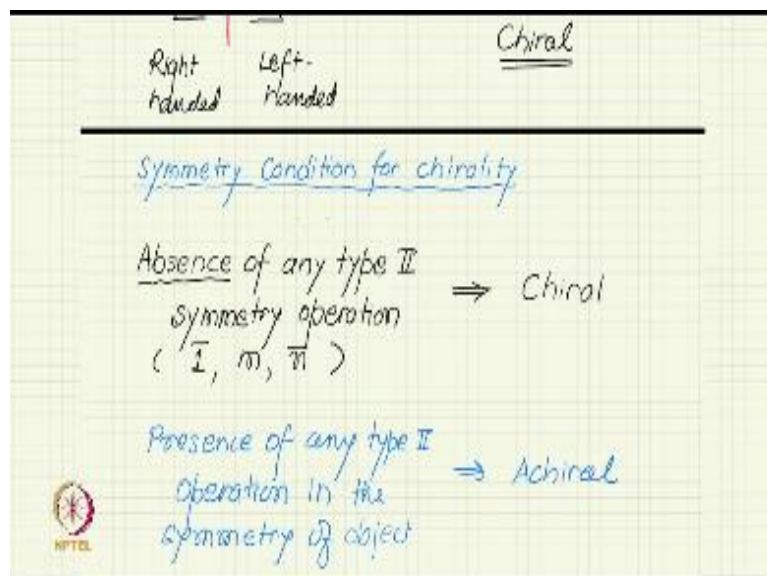 Right Left-
handed Handed
Chiral
Symmetry Condition for chirality
Absence of any type II
symmetry operation
( 1̅, m, n̅ )
⇒ Chiral
Presence of any type II
operation in the
symmetry of object
⇒ Achiral
NPTEL